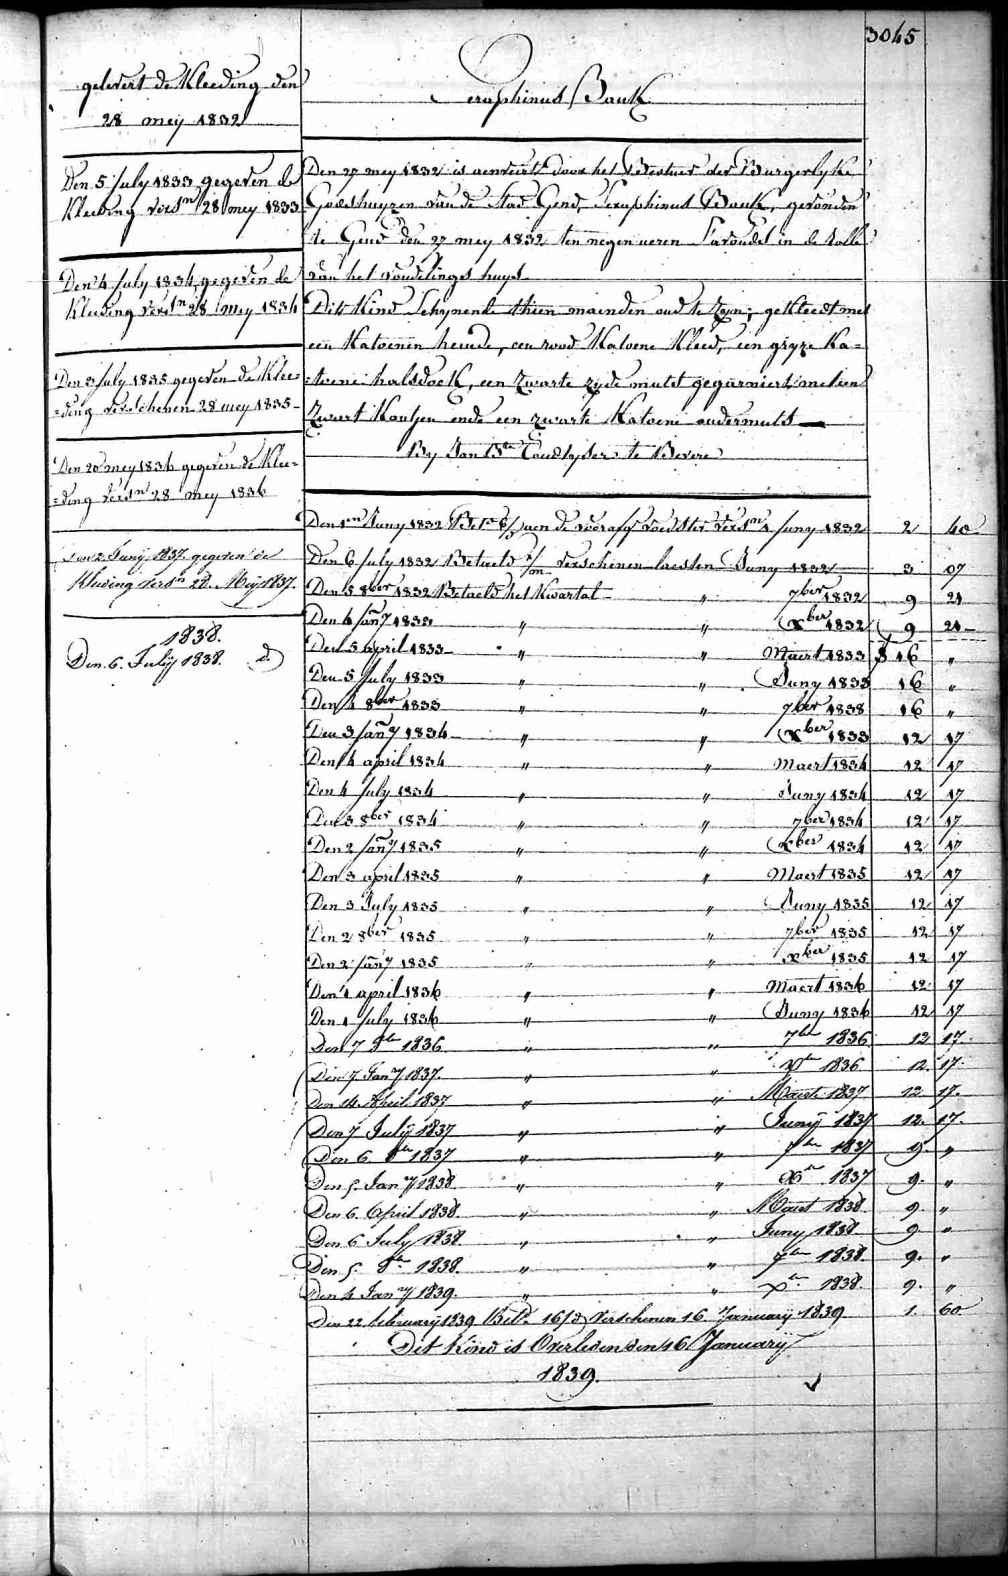 3045
gelevert de Kleeding den
28 mey 1832
Seraphinus Bauk
Den 5 july 1833 gegeven de
Kleeding versn 28 mey 1833
Den 4 july 1834, gegeven de
Kleeding versn 28 mey 1834
Den 3 july 1835 gegeven de Klee=
=ding verschenen 28 mey 1835
Den 20 mey 1836 gegeven de Klee=
=ding versn 28 mey 1836
Den 2 Junij 1837. gegeven de
Kleeding versn 28. Meij 1837.
1838.
Den. 6. Julij 1838. d.
Den 27 mey 1832 is aenveirt door het Bestier der Burgerlyke
Godshuyzen van de Stad Gend, Seraphinus Bauk, gevonden
te Gend den 27 mey 1832 ten negen ueren s'avonds in de rolle
van het vondelinges huys
Dit Kind schynende thien maenden oud te zyn; gekleedt met
een Katoenen hemde, een rood Katoene Kleed, een gryze Ka=
=toene halsdoek, een zwarte zyde muts gegarniert met een
zwart Kantjen ende een zwarte Katoene ondermuts
By Jan Bte te Bevere
Den 1en Juny 1832 aen de voedster versn 1 juny 1832 2 40
Den 6 July 1832 Betaeld verschenen laesten Juny 1832 3 07
Den 5 8ber 1832 Betaeld het Kwartal " 7ber 1832 9 21
Den 4 jany 1833 " " Xber 1832 9 21
Den 5 april 1833 " " Maert 1833 16 "
Den 5 july 1833 " " Juny 1833 16 "
Den 4 8ber 1833 " " 7ber 1833 16 "
Den 3 jany 1834 " " Xber 1833 12 17
Den 4 april 1834 " " Maert 1834 12 17
Den 4 july 1834 " " Juny 1834 12 17
Den 3 8ber 1834 " " 7ber 1834 12 17
Den 2 jany 1835 " " Xber 1834 12 17
Den 3 april 1835 " " Maert 1835 12 17
Den 3 July 1835 " " Juny 1835 12 17
Den 2 8ber 1835 " " 7ber 1835 12 17
Den 2 jany 1835 " " Xber 1835 12 17
Den 1 april 1836 " " Maert 1836 12 17
Den 1 july 1836 " " Juny 1836 12 17
Den 7 8be 1836 " " 7be 1836 12 17
Den 7 Jany 1837. " " Xbe 1836 12. 17.
Den 14 April 1837 " " Maert 1837 12 17.
Den 7 Julij 1837 " " Junij 1837 12. 17.
Den 6. 8be 1837 " " 7be 1837 9. "
Den 5. Jany 1838 " " Xbe 1837 9. "
Den 6. April 1838. " " Maert 1838. 9. "
Den 6 July 1838. " " Juny 1838 9 "
Den 5. 8be 1838. " " 7be 1838. 9. "
Den 4 Jany 1839. " " Xbe 1838. 9. "
Den 22 february 1839 Betd. 16/d Verschenen 16 January 1839 1. 60
Dit Kind is Overleden den 16 January
1839.